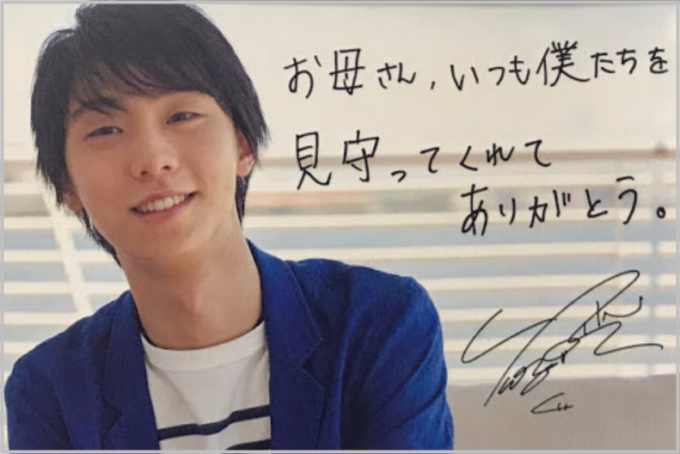 お母さん,いつも僕たちを
見守ってくれて
ありがとう。